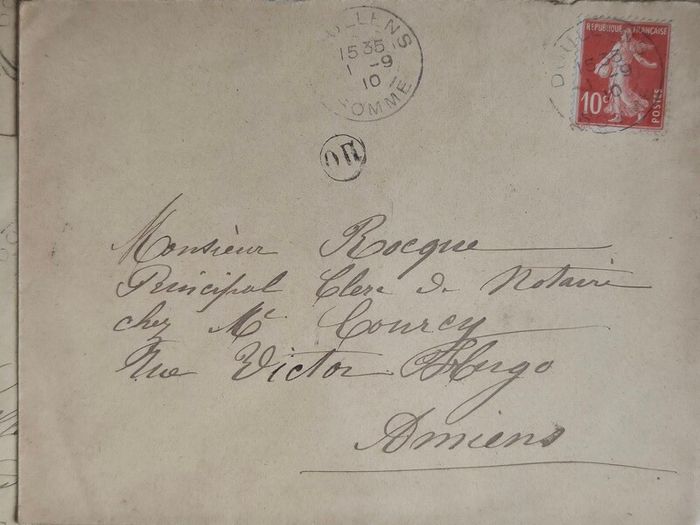 DOULLENS
15 35
1 -9
10
SOMME
OR
REPUBLIQUE FRANÇAISE
10c
POSTES
Monsieur Rocque
Principal Clerc de Notaire
chez Me Courcy
Rue Victor Hugo
Amiens